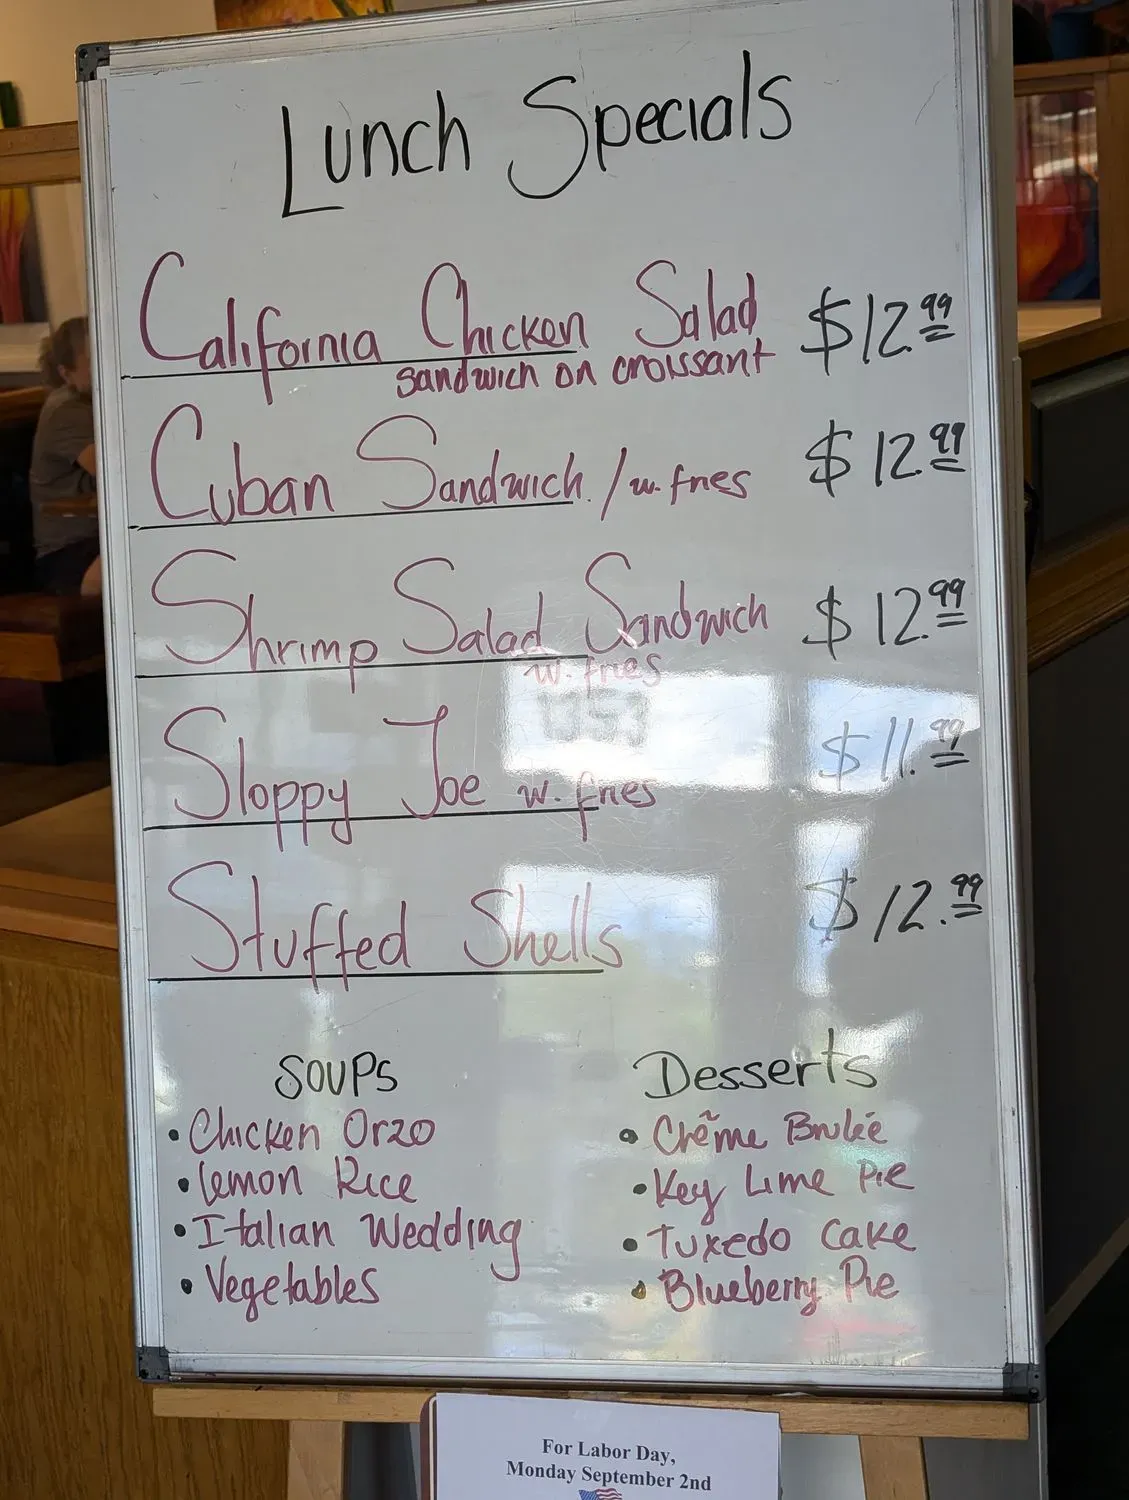 Lunch Specials
California Chicken Salad $12.99
sandwich on croissant
Cuban Sandwich / w. fries $12.99
Shrimp Salad Sandwich $12.99
w. fries
Sloppy Joe w. fries $11.99
Stuffed Shells $12.99
SOUPS
• Chicken Orzo
• Lemon Rice
• Italian Wedding
• Vegetables
Desserts
• Crẽme Brulée
• Key Lime Pie
• Tuxedo Cake
• Blueberry Pie
For Labor Day,
Monday September 2nd